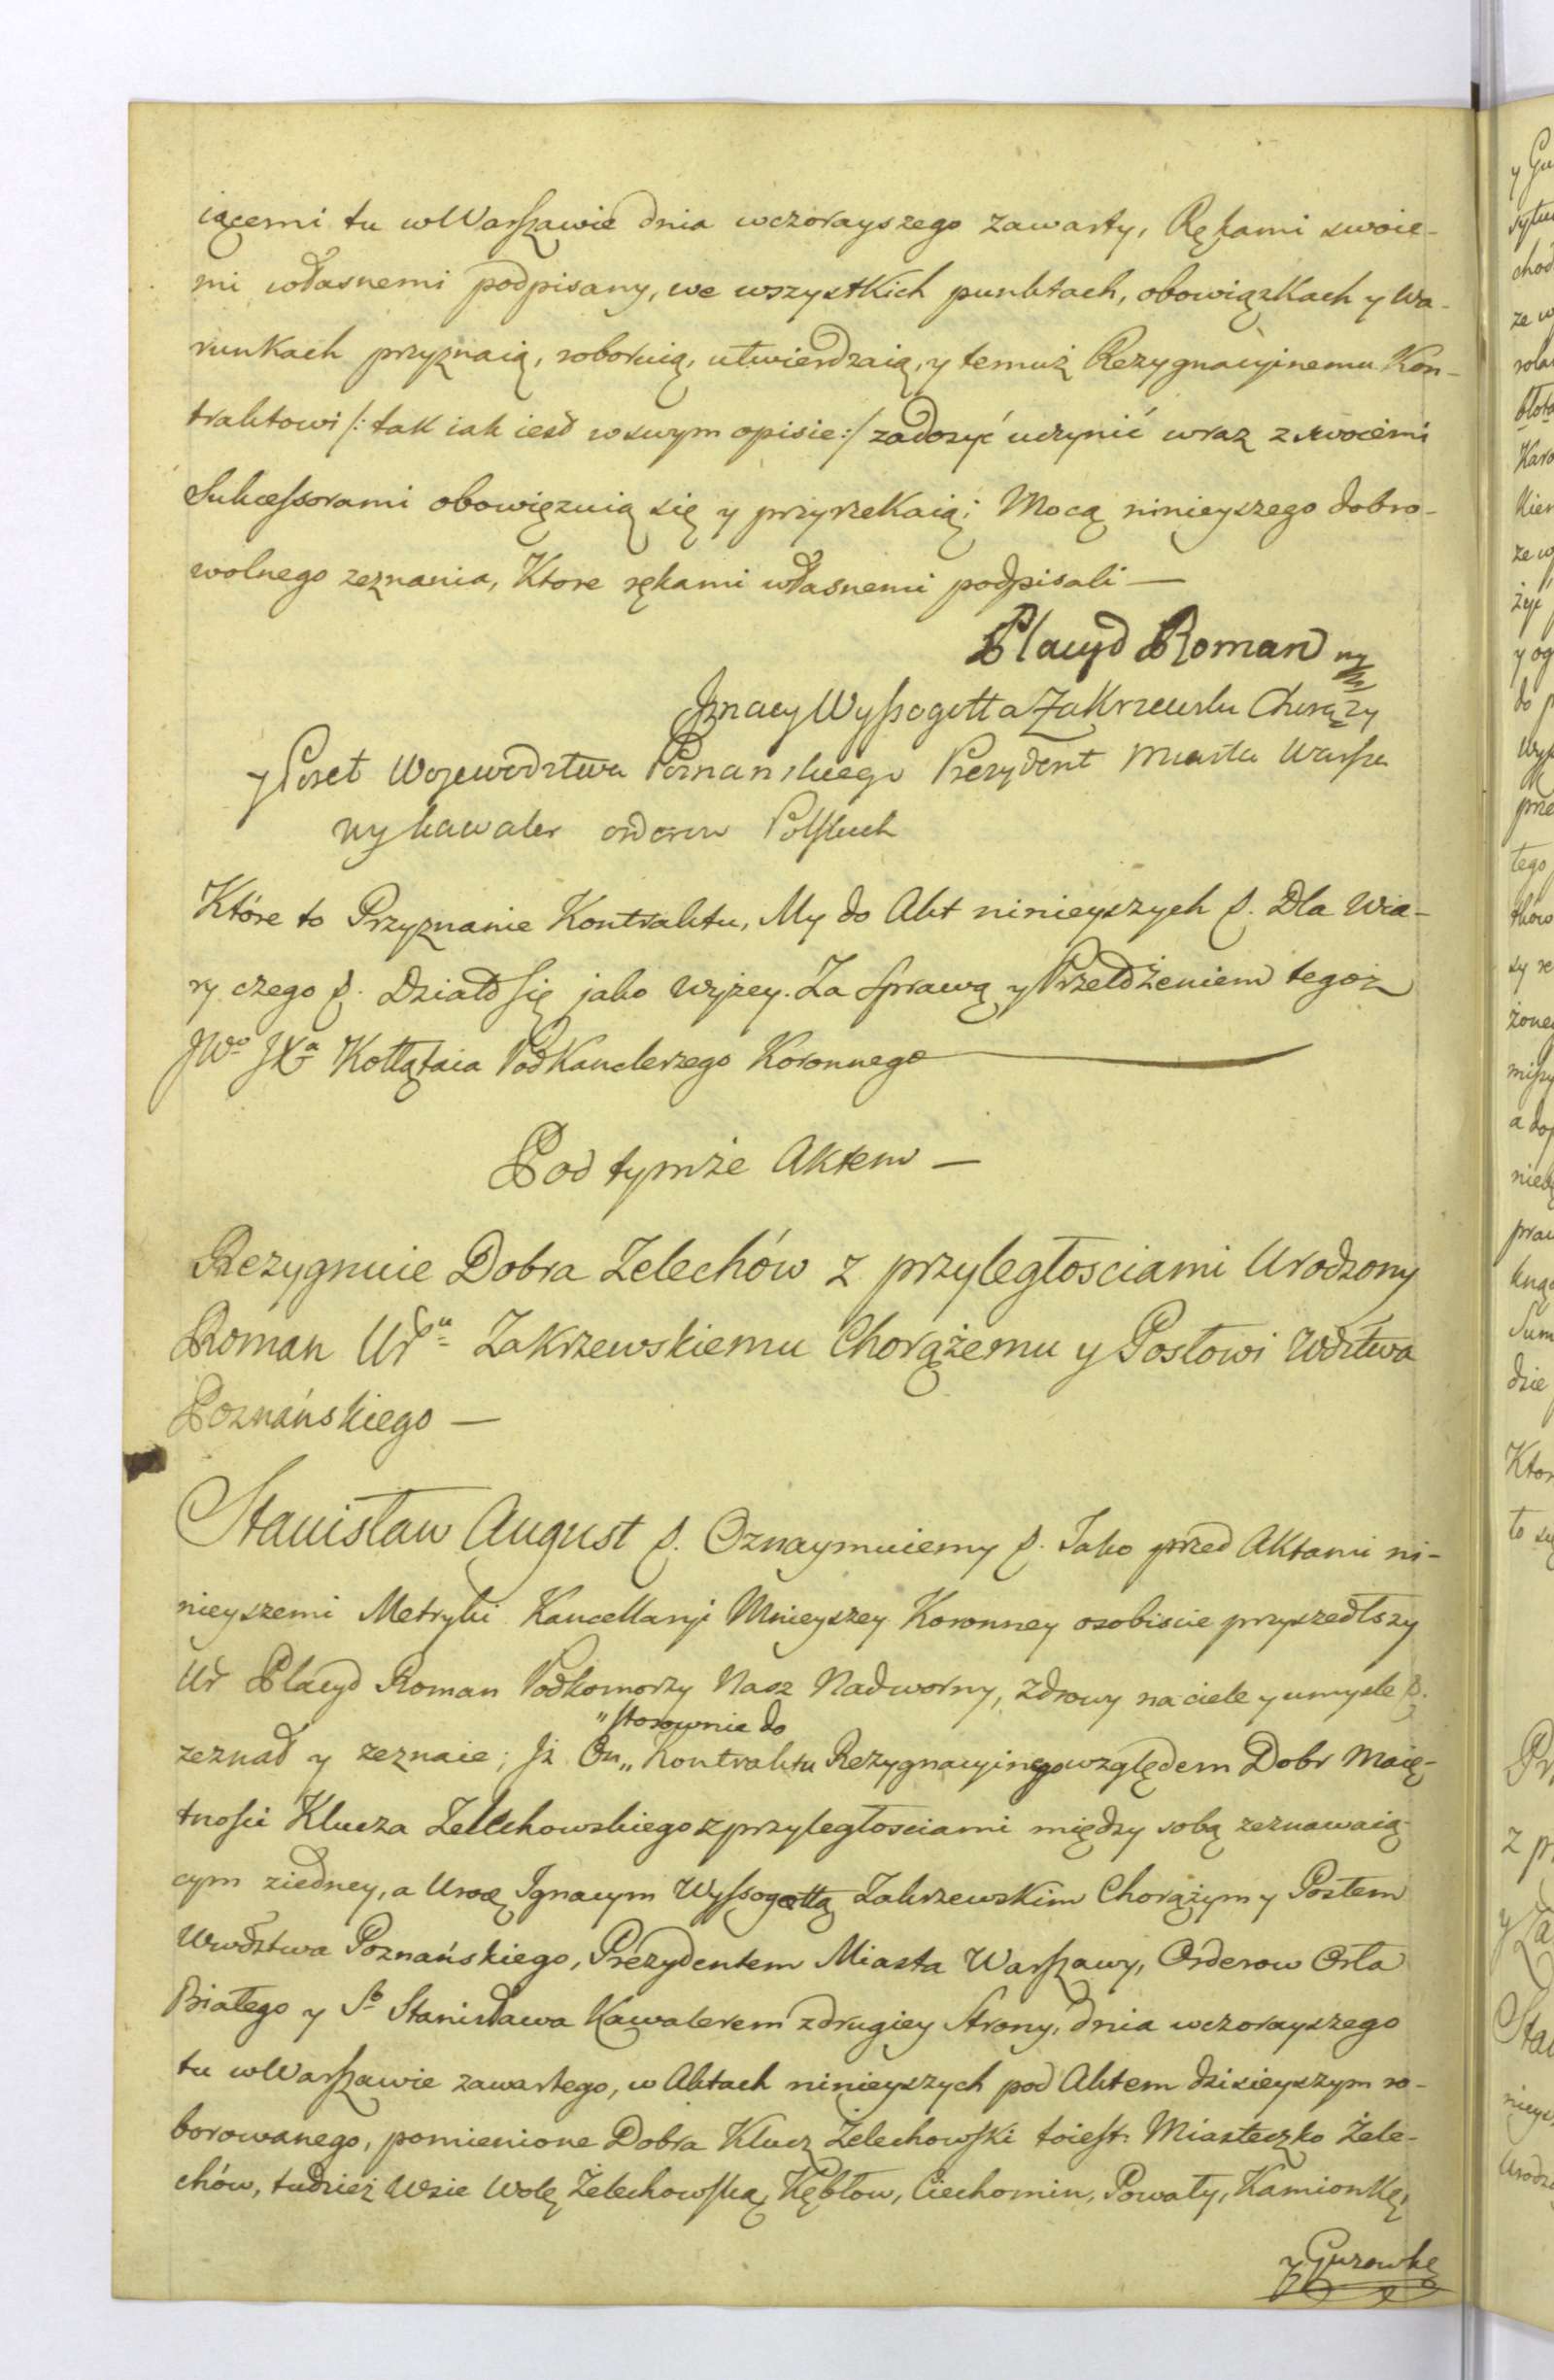 iącemi tu w Warszawie dnia wczorayszego zawarty, Rękami swoie-
mi własnemi podpisany, we wszystkich punktach, obowiązkach y Wa-
runkach przyznaią, roboruią, utwierdzaią, y temuż Rezygnacyinemu Kon-
traktowi /: tak iak iest w swym opisie :/ zadosyć uczynić wraz z swoiemi
Sukcessorami obowięzuią się y przyrzekaią; Mocą ninieyszego dobro-
wolnego zeznania, Ktore rękami własnemi podpisali —
Placyd Roman
Ignacy Wyssogotta Zakrzewski Chorąży
y Poseł Wojewodztwa Poznanskiego Prezydent Miasta Warsza
wy kawaler orderow Polskich
Które to Przyznanie Kontraktu, My do Akt ninieyszych p. Dla Wia-
ry czego p. Działo się jako wyżey. Za sprawą y Przełożeniem tegoż
JWo JXa Kołłątaia Podkanclerzego Koronnego
Pod tymże Aktem —
Rezygnuie Dobra Zelechów z przyległosciami Urodzony
Roman Uru Zakrzewskiemu Chorążemu y Posłowi Wdztwa
Poznańskiego —
Stanisław August p. Oznaymuiemy p. Jako przed Aktami ni-
nieyszemi Metryki Kancellaryi Mnieyszey Koronney osobiscie przyszedłszy
Ur Placyd Roman Podkomorzy Nasz Nadworny, zdrowy na ciele y umysle p.
zeznał y zeznaie; Jż On „ stosownie do „ Kontraktu Rezygnacyinego względem Dobr Maię-
tnosci Klucza Zelechowskiego z przyległosciami między sobą zeznawaią-
cym z iedney, a Uroę Ignacym Wyssogottą Zakrzewskim Chorążym y Posłem
Wwdztwa Poznańskiego, Prezydentem Miasta Warszawy, Orderow Orła
Białego y So Stanisława Kawalerem z drugiey Strony, dnia wczorayszego
tu w Warszawie zawartego, w Aktach ninieyszych pod Aktem dzisieyszym ro-
borowanego, pomienione Dobra Klucz Żelechowski toiest: Miasteczko Żele-
chów, tudzież Wsie Wolę Żelechowską, Kębłow, Ciechomin, Powały, Kamionkę,
y Gurowkę